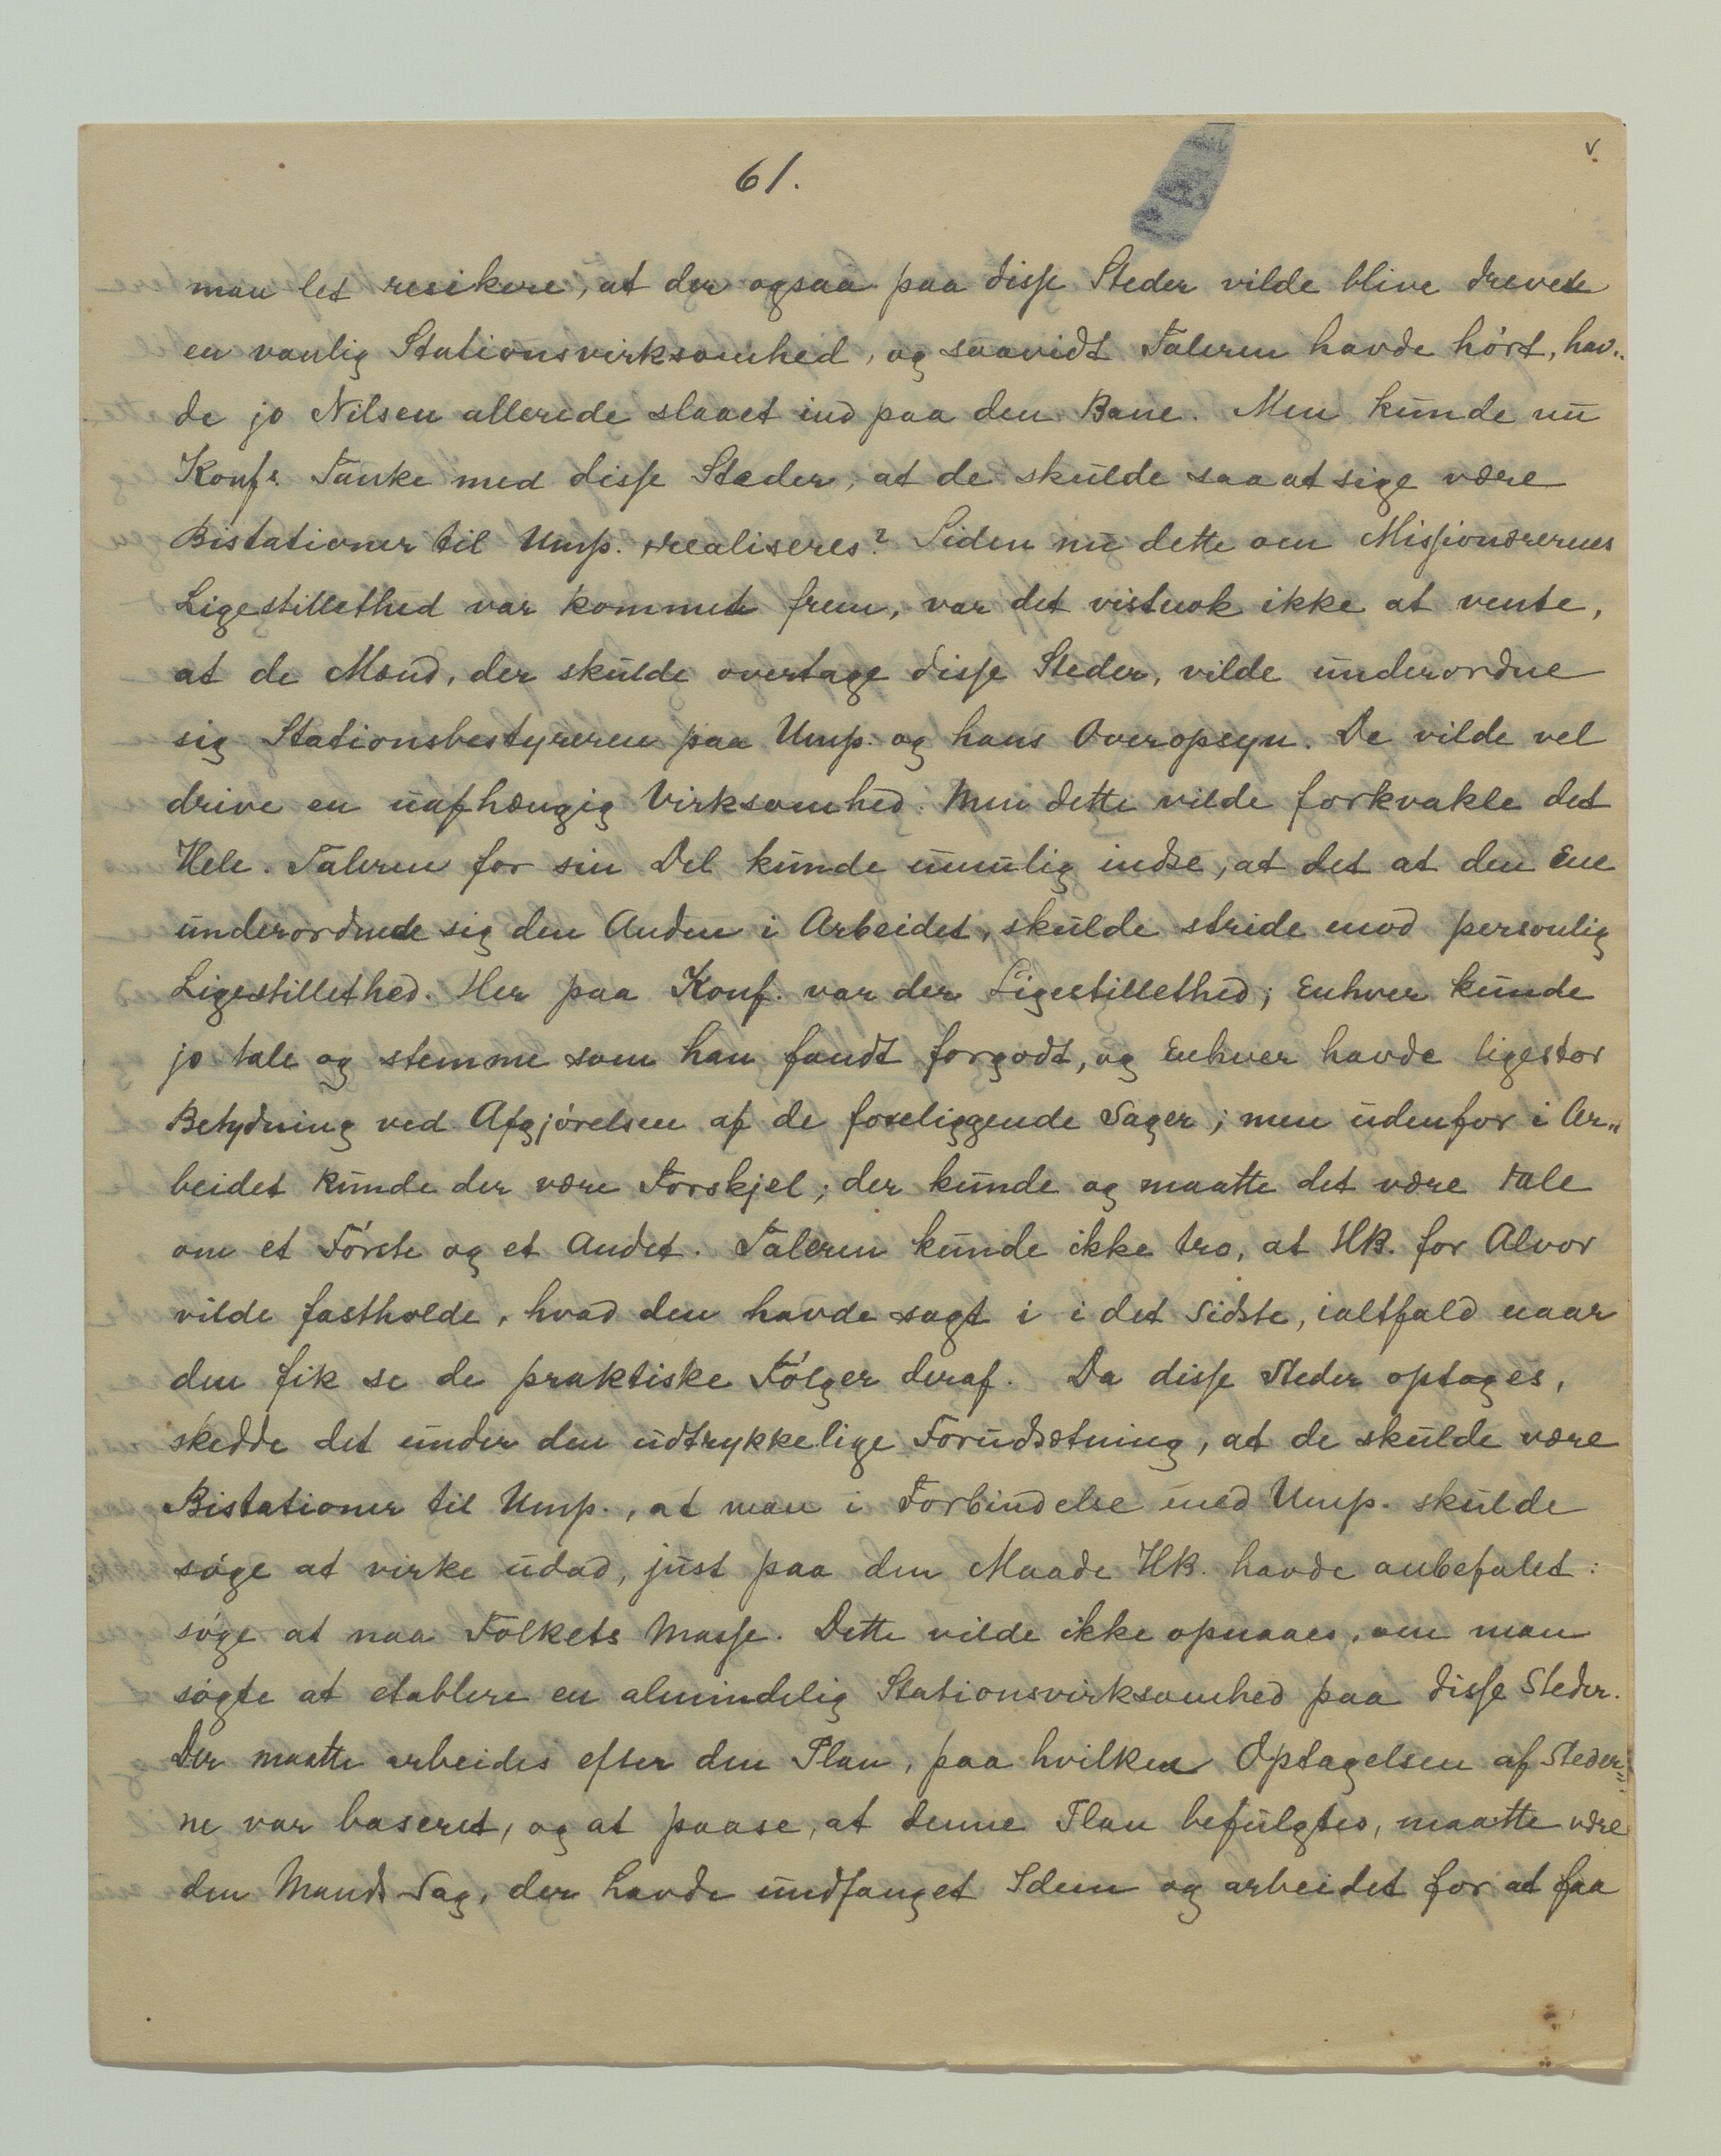 61.
v.
man let resikere, at der ogsaa paa disse Steder vilde blive drevet
en vanlig Stationsvirksomhed, og saavidt Taleren havde hört, hav„
de jo Nilsen allerede slaaet ind paa den Bane. Men kunde nu
Konfs. Tanke med disse Steder, at de skulde saa at sige være
Bistationer til Ump. realiseres? Siden nu dette om Missionærernes
Ligestillethed var kommet frem, var det vistnok ikke at vente,
at de Mænd, der skulde overtage disse Steder, vilde underordne
sig Stationsbestyreren paa Ump. og hans Overopsyn. De vilde vel
drive en uafhængig Virksomhed. Men dette vilde forkvakle det
Hele. Taleren for sin Del kunde umulig indse, at det at den Ene
underordnede sig den Anden i Arbeidet, skulde stride mod personlig
Ligestillethed. Her paa Konf. var der Ligestillethed; Enhver kunde
jo tale og stemme som han fandt forgodt, og Enhver havde ligestor
Betydning ved Afgjörelsen af de foreliggende Sager; men udenfor i Ar„
beidet kunde der være Forskjel; der kunde og maatte det være Tale
om et Förste og et Andet. Taleren kunde ikke tro, at HB. for Alvor
vilde fastholde, hvad den havde sagt i i det Sidste, ialtfald naar
den fik se de praktiske Fölger deraf. Da disse Steder optages,
skedde det under den udtrykkelige Forudsætning, at de skulde være
Bistationer til Ump., at man i Forbindelse med Ump. skulde
söge at virke udad, just paa den Maade HB. havde anbefalet:
söge at naa Folkets Masse. Dette vilde ikke opnaaes, om man
sögte at etablere en almindelig Stationsvirksomhed paa disse Steder.
Der maatte arbeides efter den Plan, paa hvilken Optagelsen af Steder„
ne var baseret, og at paase, at denne Plan befulgtes, maatte være
den Mands Sag, der havde undfanget Ideen og arbeidet for at faa